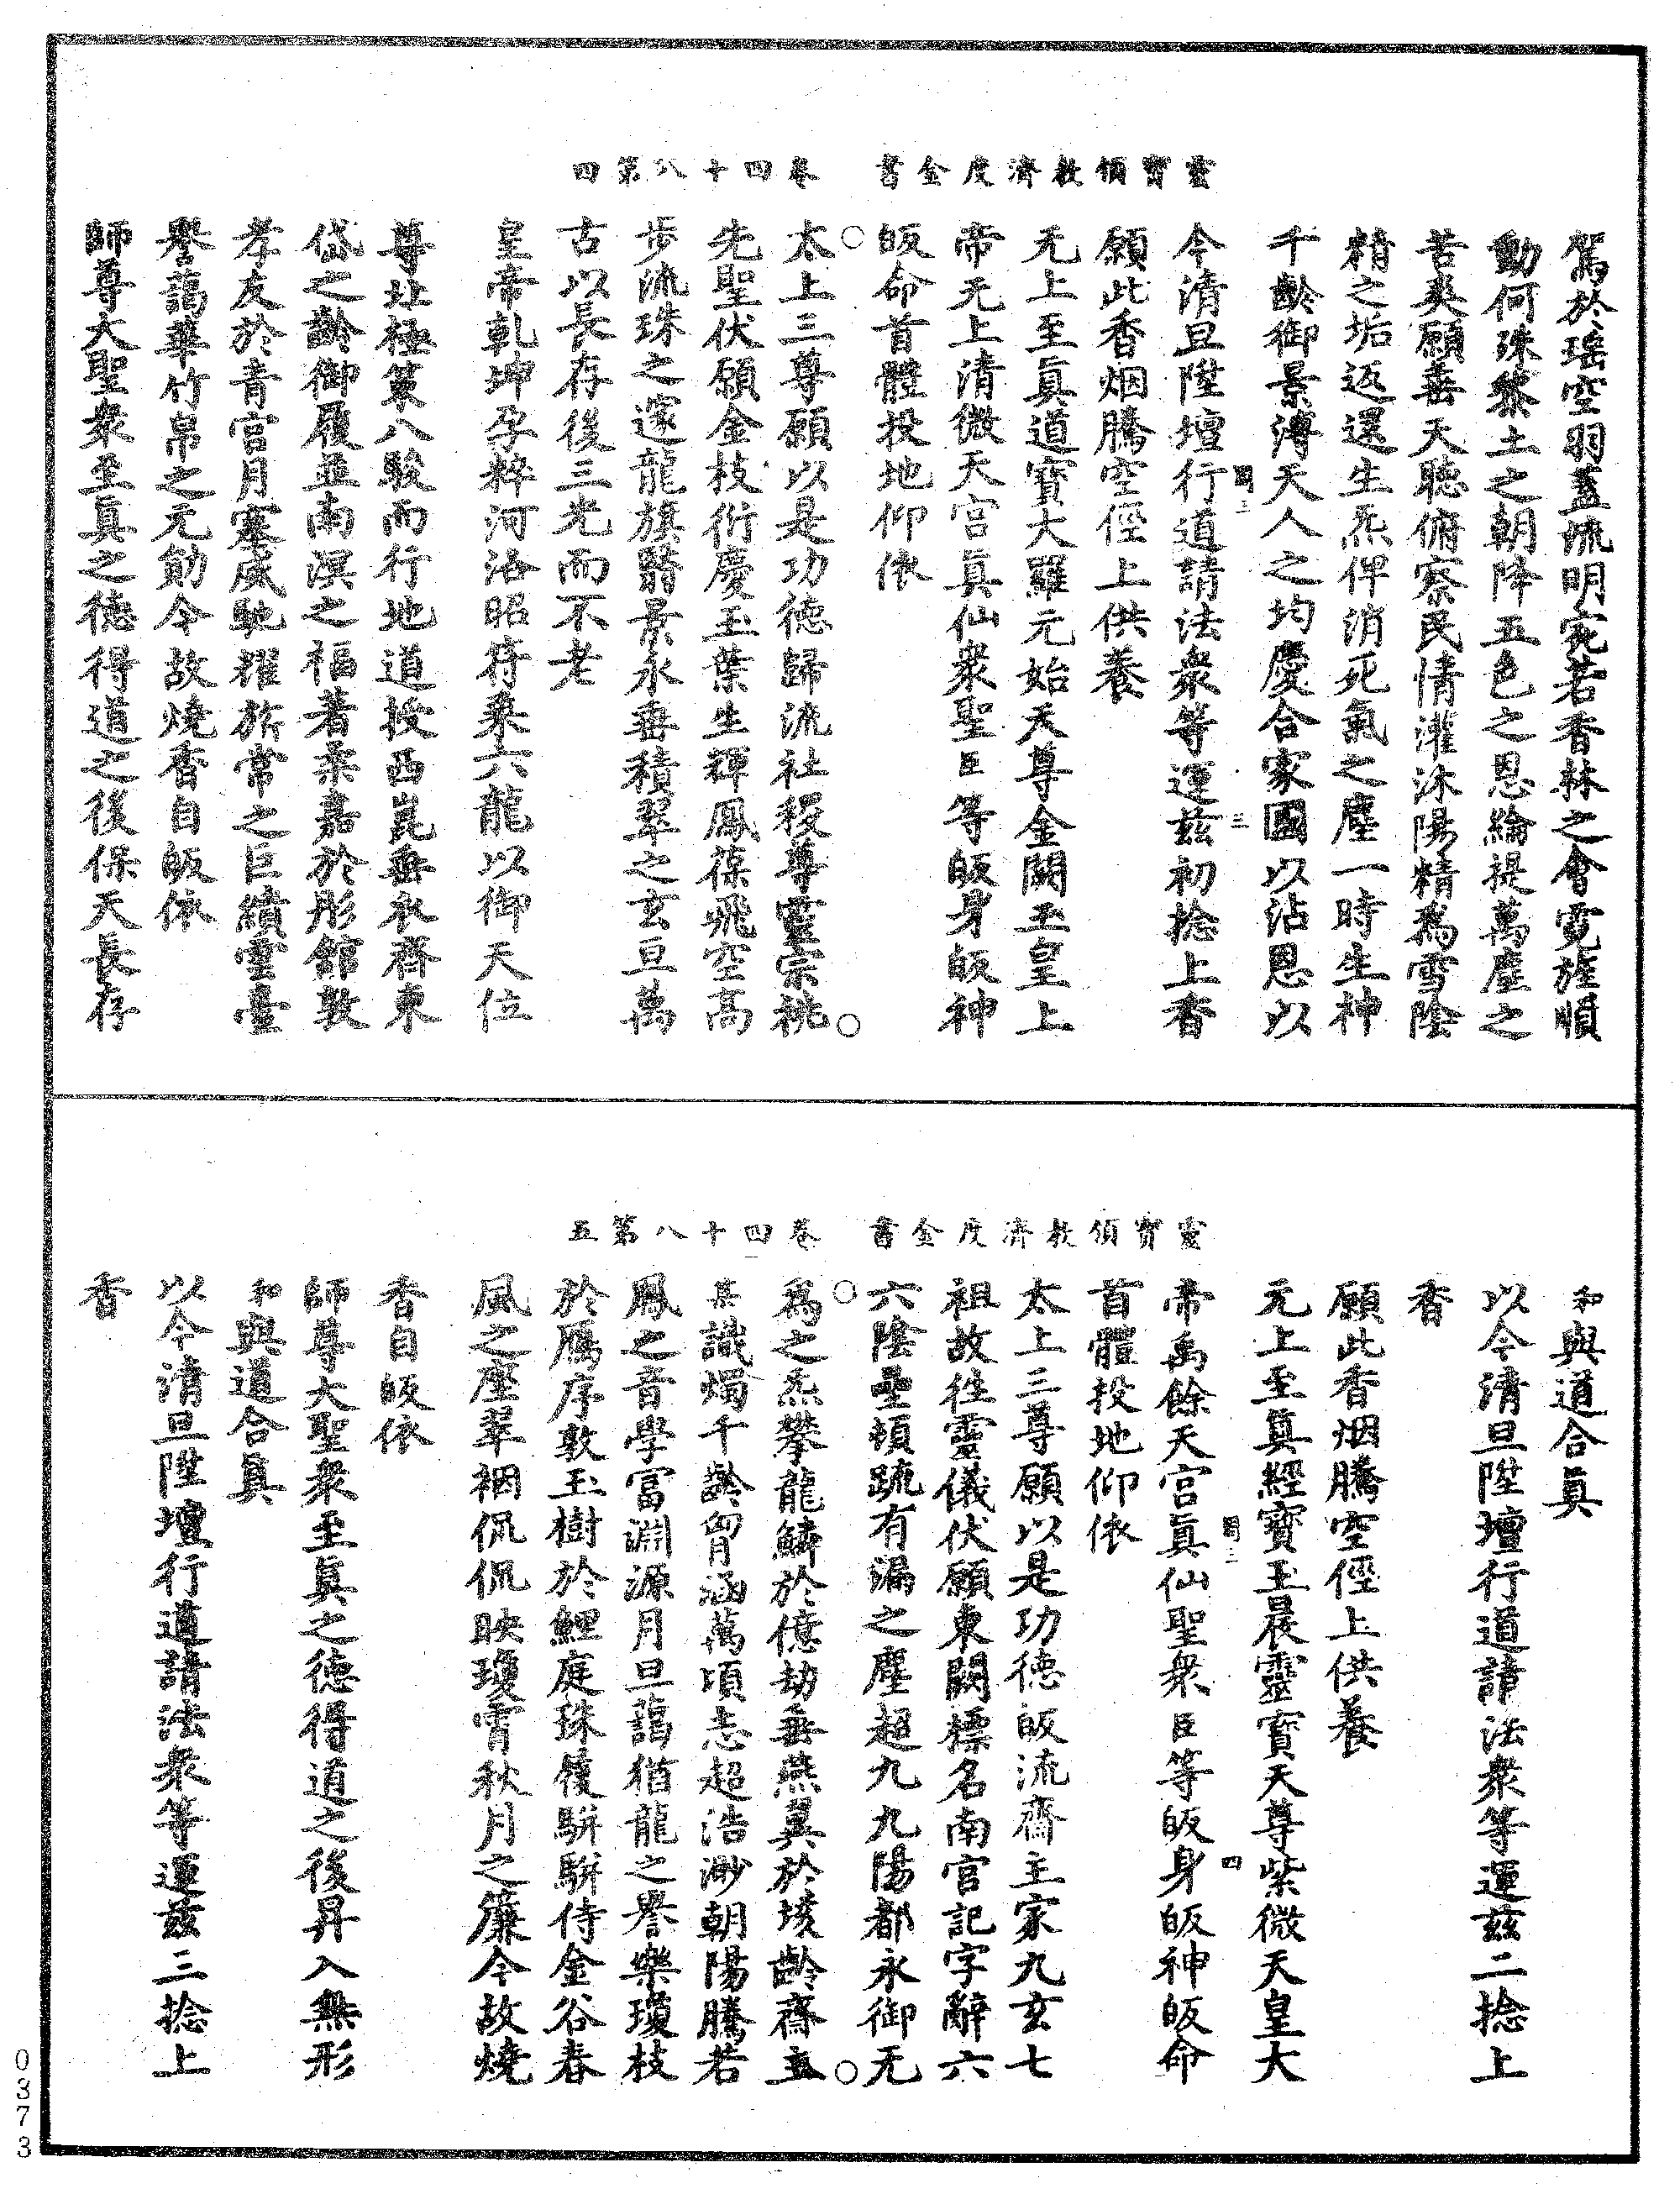 靈寶領教濟度金書 卷四十八第四
駕於瑤空羽蓋流明宛若香林之會霓旌順
動何殊黍土之朝降五色之恩綸提萬塵之
苦爽願垂天聽俯察民情灌沐陽精為雪陰
精之垢返還生炁俾消死氣之塵一時生神
千齡御景溥天人之均慶合家國以沾恩以
今清旦陞壇行道請法眾等運茲初捻上香
願此香烟騰空徑上供養
无上至真道寶大羅元始天尊金闕玉皇上
帝无上清微天宫真仙眾聖臣等皈身皈神
皈命首體投地仰依
太上三尊願以是功德歸流社稷尊靈宗祧
先聖伏願金枝衍慶玉葉生輝鳳葆飛空高
步流珠之邃龍旗翳景永垂積翠之玄亘萬
古以長存後三光而不老
皇帝乾坤孕粹河洛昭符乘六龍以御天位
尊北極策八駿而行地道投西崑垂衣齊東
岱之齡御履並南溟之福著柔嘉於彤館敦
孝友於青宫月寨威馳耀旂常之巨績雲臺
譽藹華竹帛之元勛今故燒香自皈依
師尊大聖眾至真之德得道之後保天長存
三
靈寶領教濟度金書 卷四十八第五
和與道合真
以今清旦陞壇行道請法眾等運茲二捻上
香
願此香烟騰空徑上供養
无上至真經寶玉晨靈寶天尊紫微天皇大
帝禹餘天宫真仙聖眾臣等皈身皈神皈命
首體投地仰依
太上三尊願以是功德皈流齋主家九玄七
祖故往靈儀伏願東闕標名南宫記字辭六
六陰壘頓疏有漏之塵超九九陽都永御无
為之炁攀龍鱗於億劫垂燕翼於垓齡齋主
某識燭千齡胷涵萬頃志超浩渺朝陽騰若
鳳之音學富淵源月旦藹猶龍之譽樂瓊枝
於鴈序敦玉樹於鯉庭珠履駢駢侍金谷春
風之座翠裀侃侃映瓊霄秋月之簾今故燒
香自皈依
師尊大聖眾至真之德得道之後昇入無形
和與道合真
以今清旦陞壇行道請法眾等運茲三捻上
香
四
0373